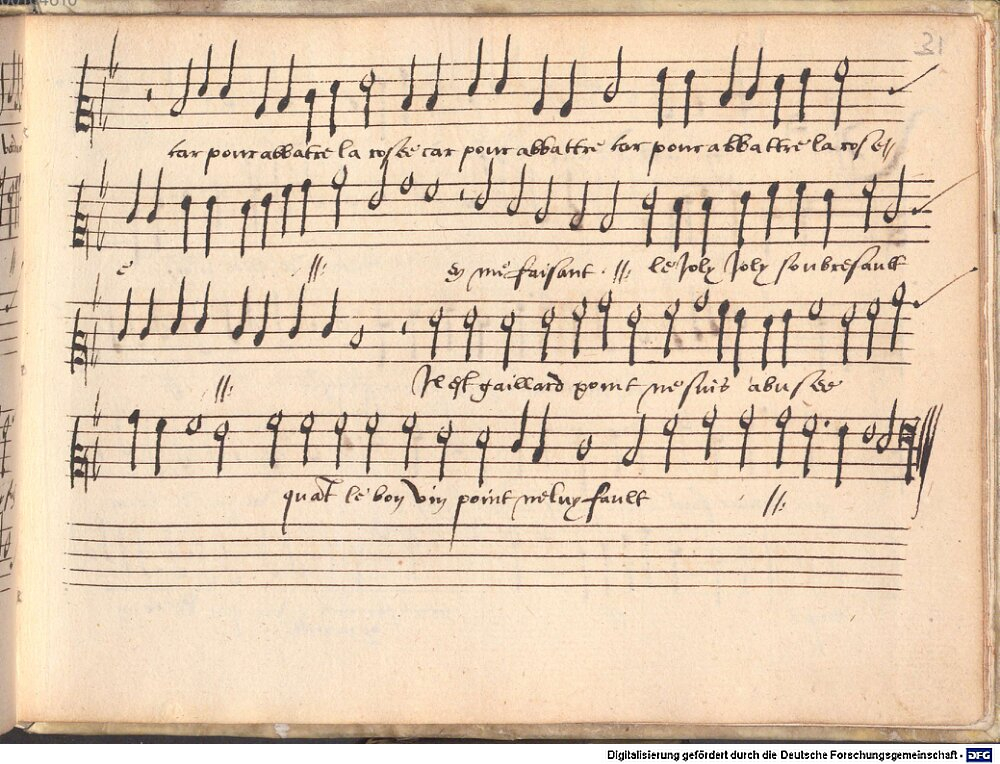 21
car pour abbatre la rosee car pour abbattre car pour abbattre la rose
e //: en me faisant //: le Joly Joly soubresault
//: Il est gaillard point ne suis abusee
quāt le bon vin point ne luy fault //:
Digitalisierung gefördert durch die Deutsche Forschungsgemeinschaft - DFG